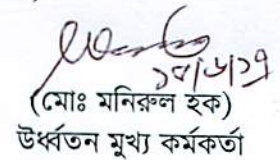 (মোঃ মনিরুল হক)
উর্ধ্বতন মুখ্য কর্মকর্তা